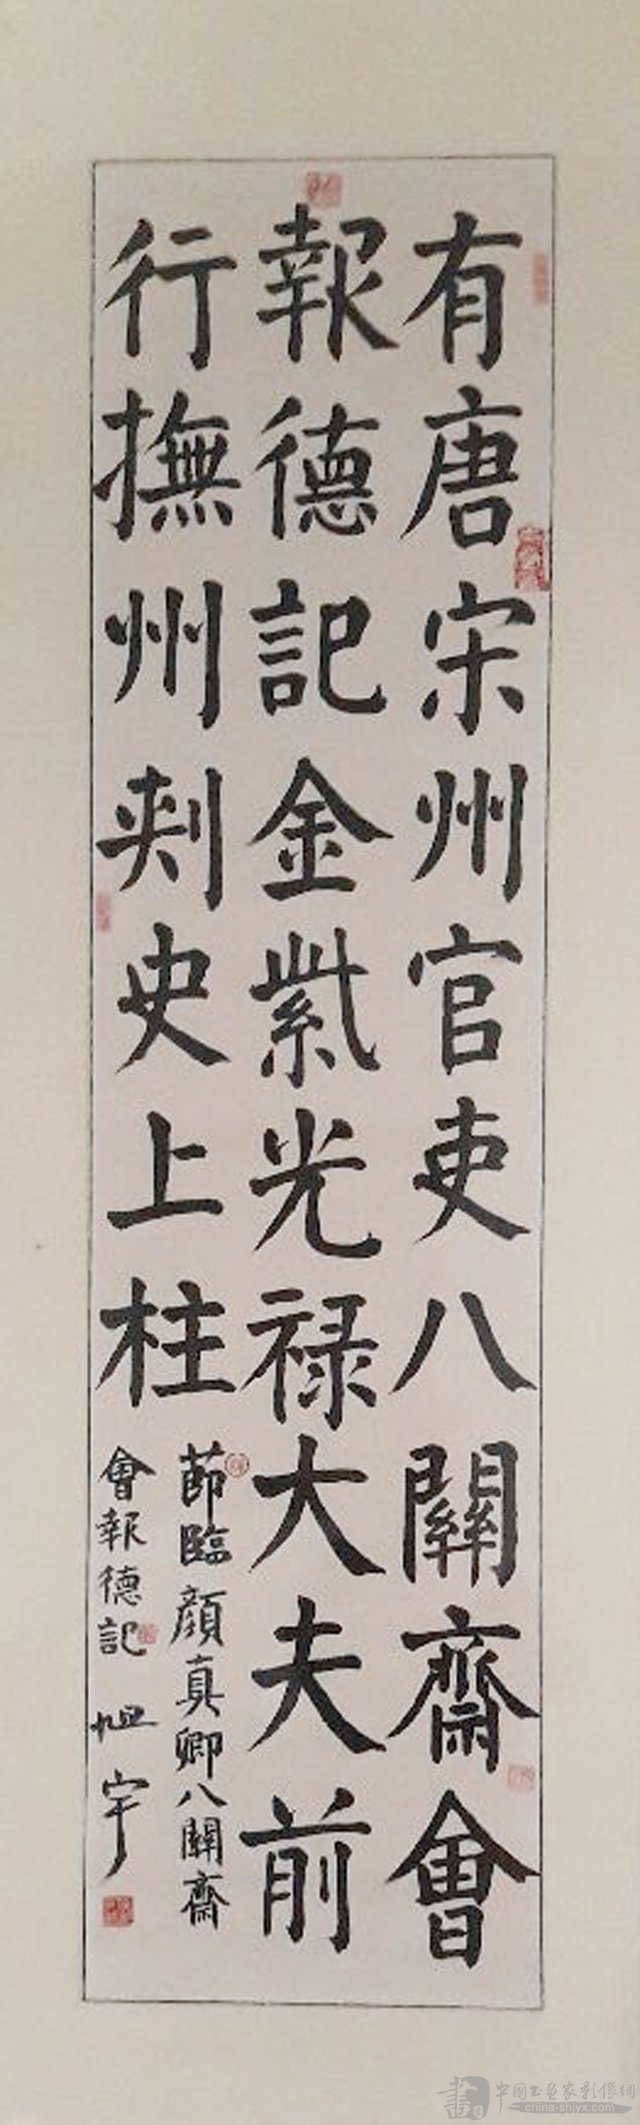 有唐宋州官吏八關齋會
報德記金紫光禄大夫前
行撫州刾史上柱
節臨顔真卿八關齋
會報德記 旭宇
中国书画家影像网
china-shjyx.com